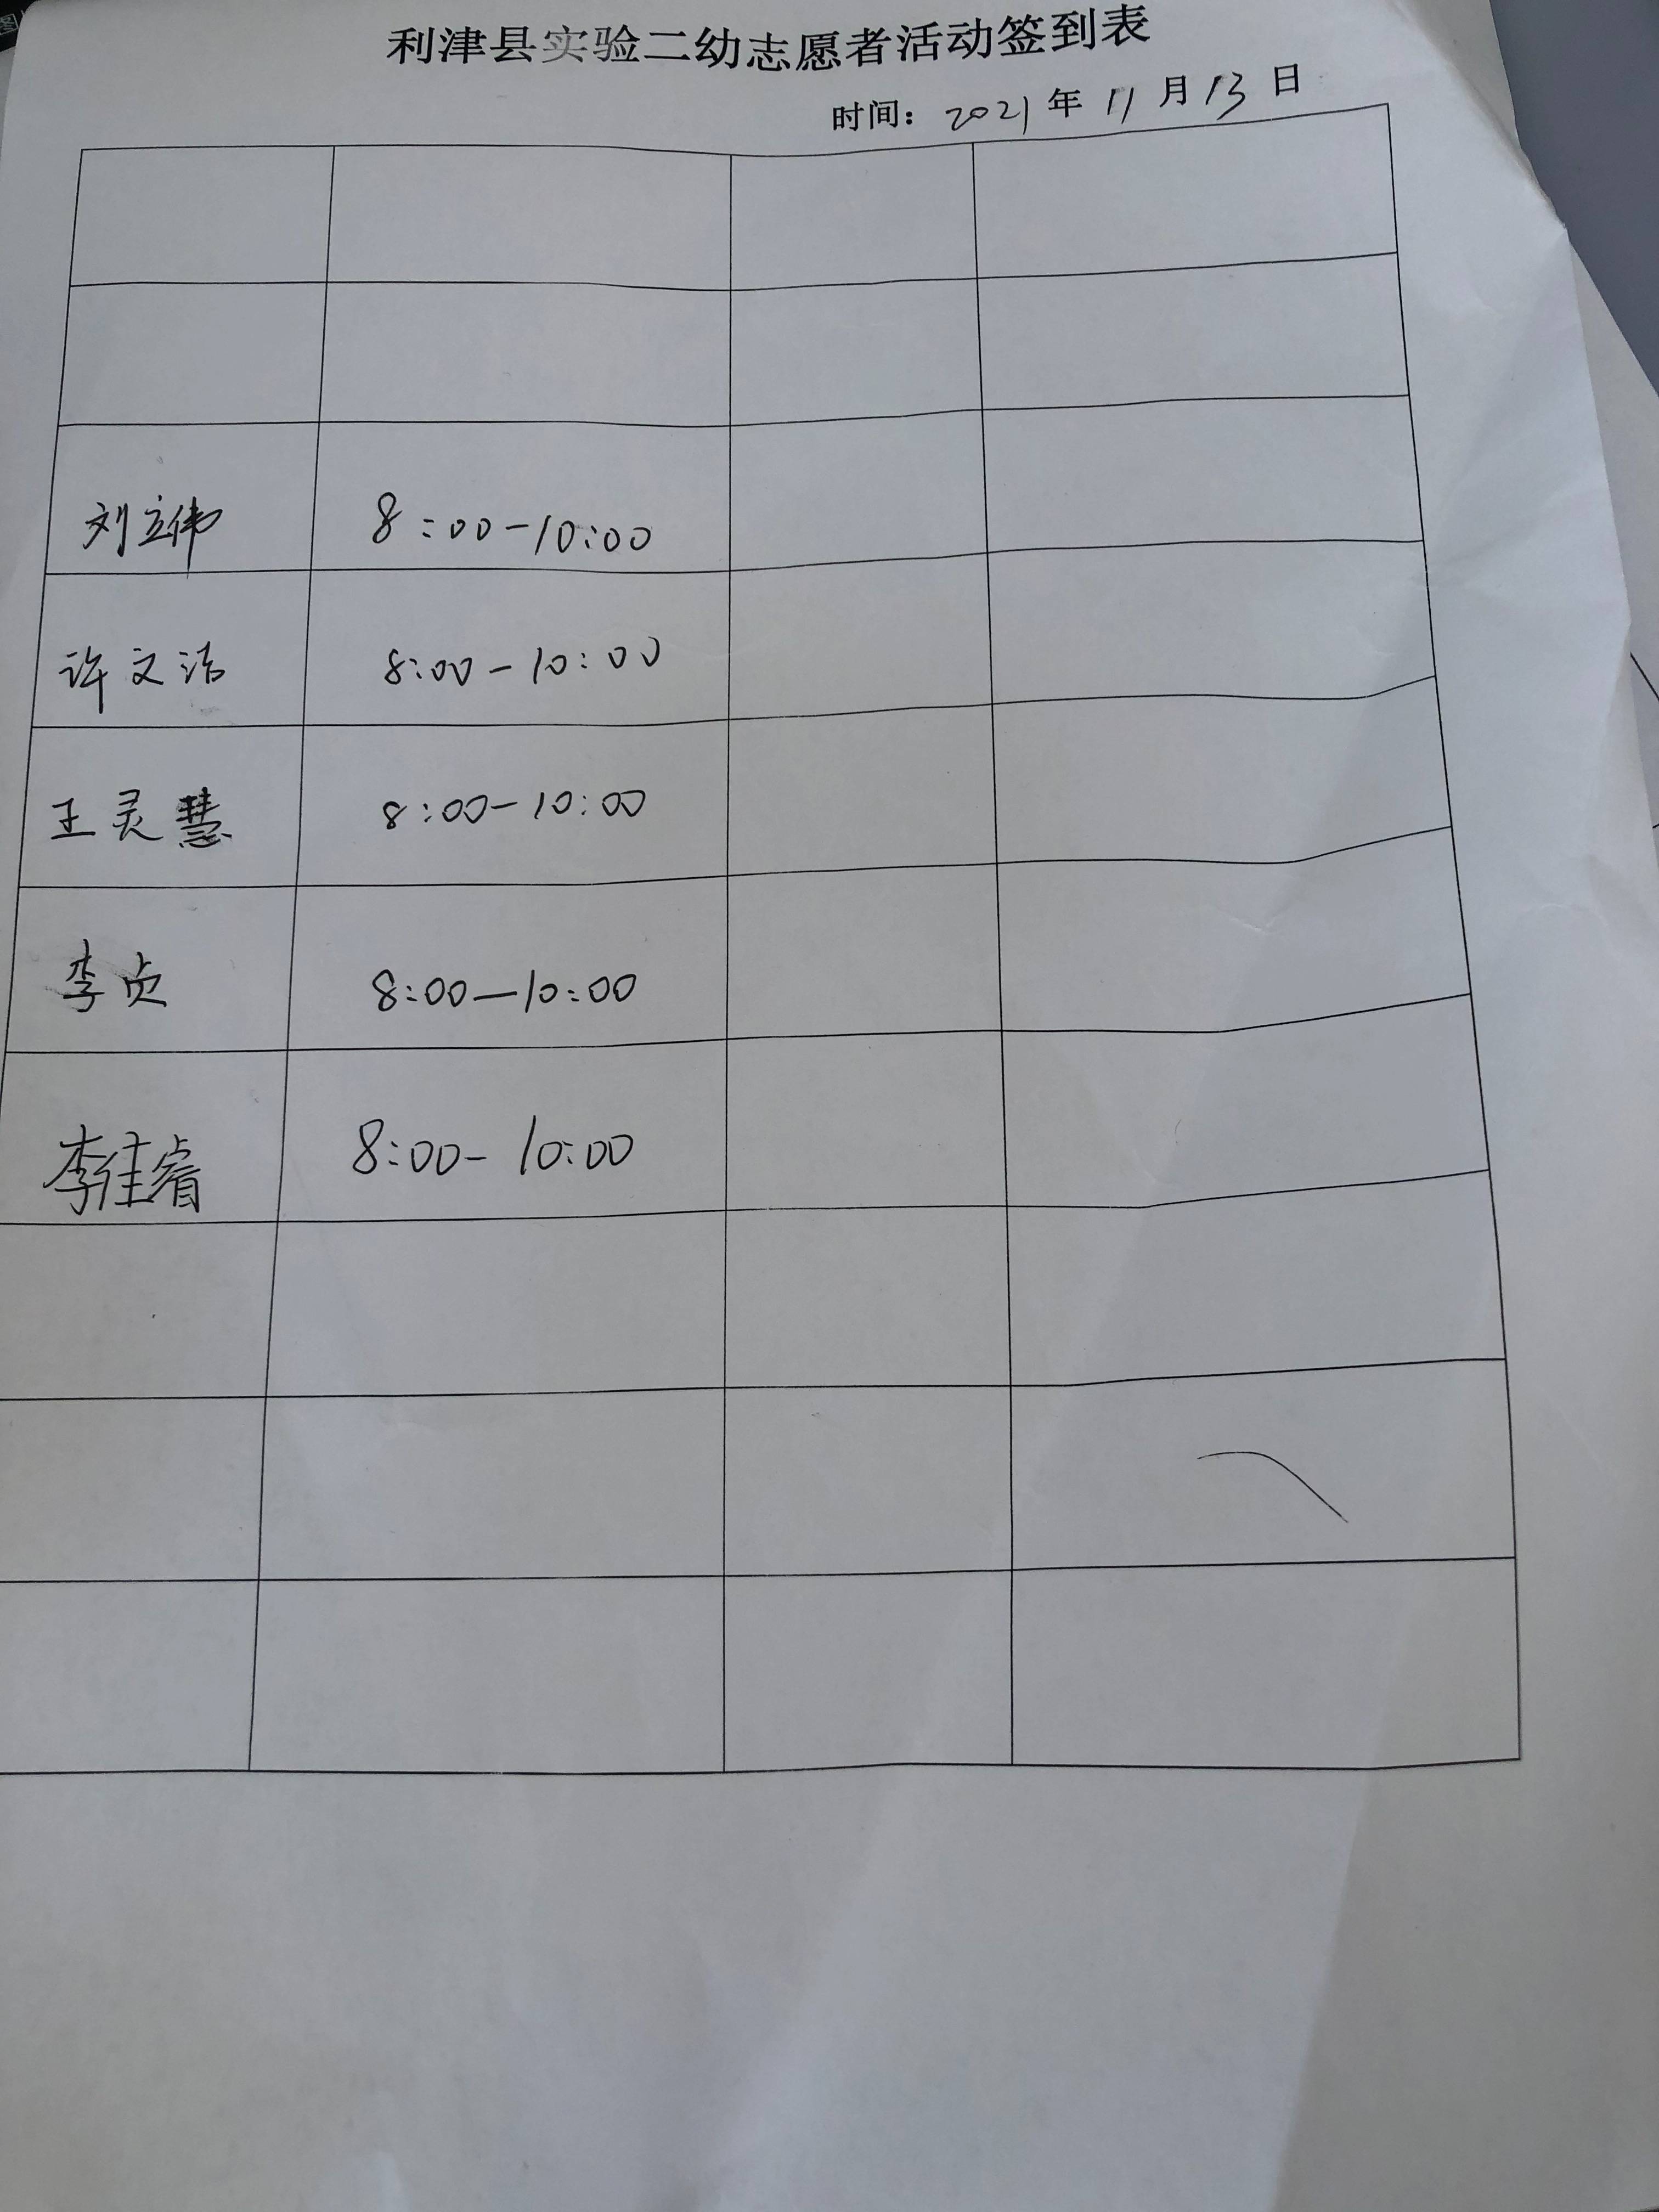 利津县实验二幼志愿者活动签到表
时间：2021年11月13日
刘立伟 8:00-10:00
许文洁 8:00-10:00
王灵慧 8:00-10:00
李贞 8:00-10:00
李佳睿 8:00-10:00